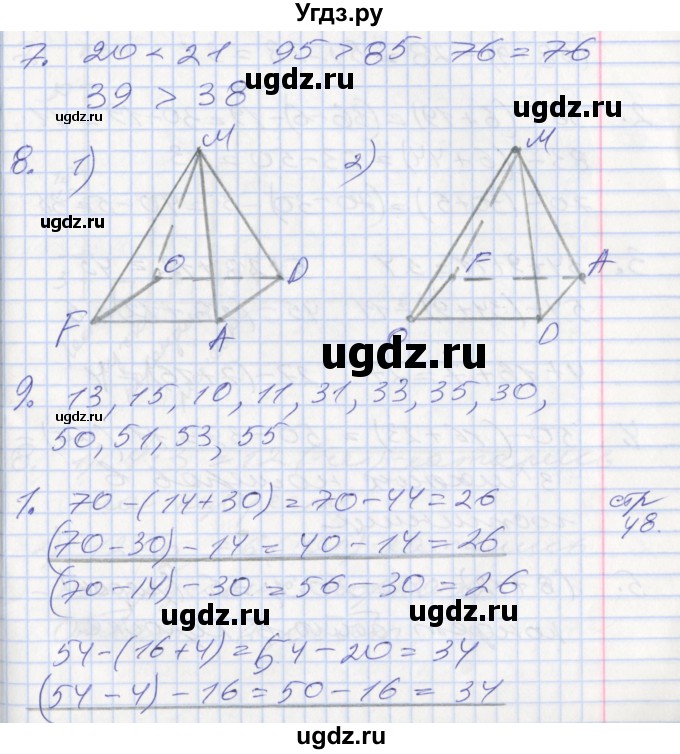 Угдз.ру
7. 20 < 21 95 > 85 76 = 76
39 > 38
ugdz.ru
ugdz.ru
ugdz.ru
8. 1) M 2) M
ugdz.ru
O D F A
F A O D
ugdz.ru
9. 13, 15, 10, 11, 31, 33, 35, 30,
50, 51, 53, 55
ugdz.ru
ugdz.ru
1. 70-(14+30)=70-44=26 стр 48.
(70-30)-14=40-14=26
(70-14)-30=56-30=26
ugdz.ru
ugdz.ru
54-(16+4)=54-20=34
(54-4)-16=50-16=34
ugdz.ru
ugdz.ru